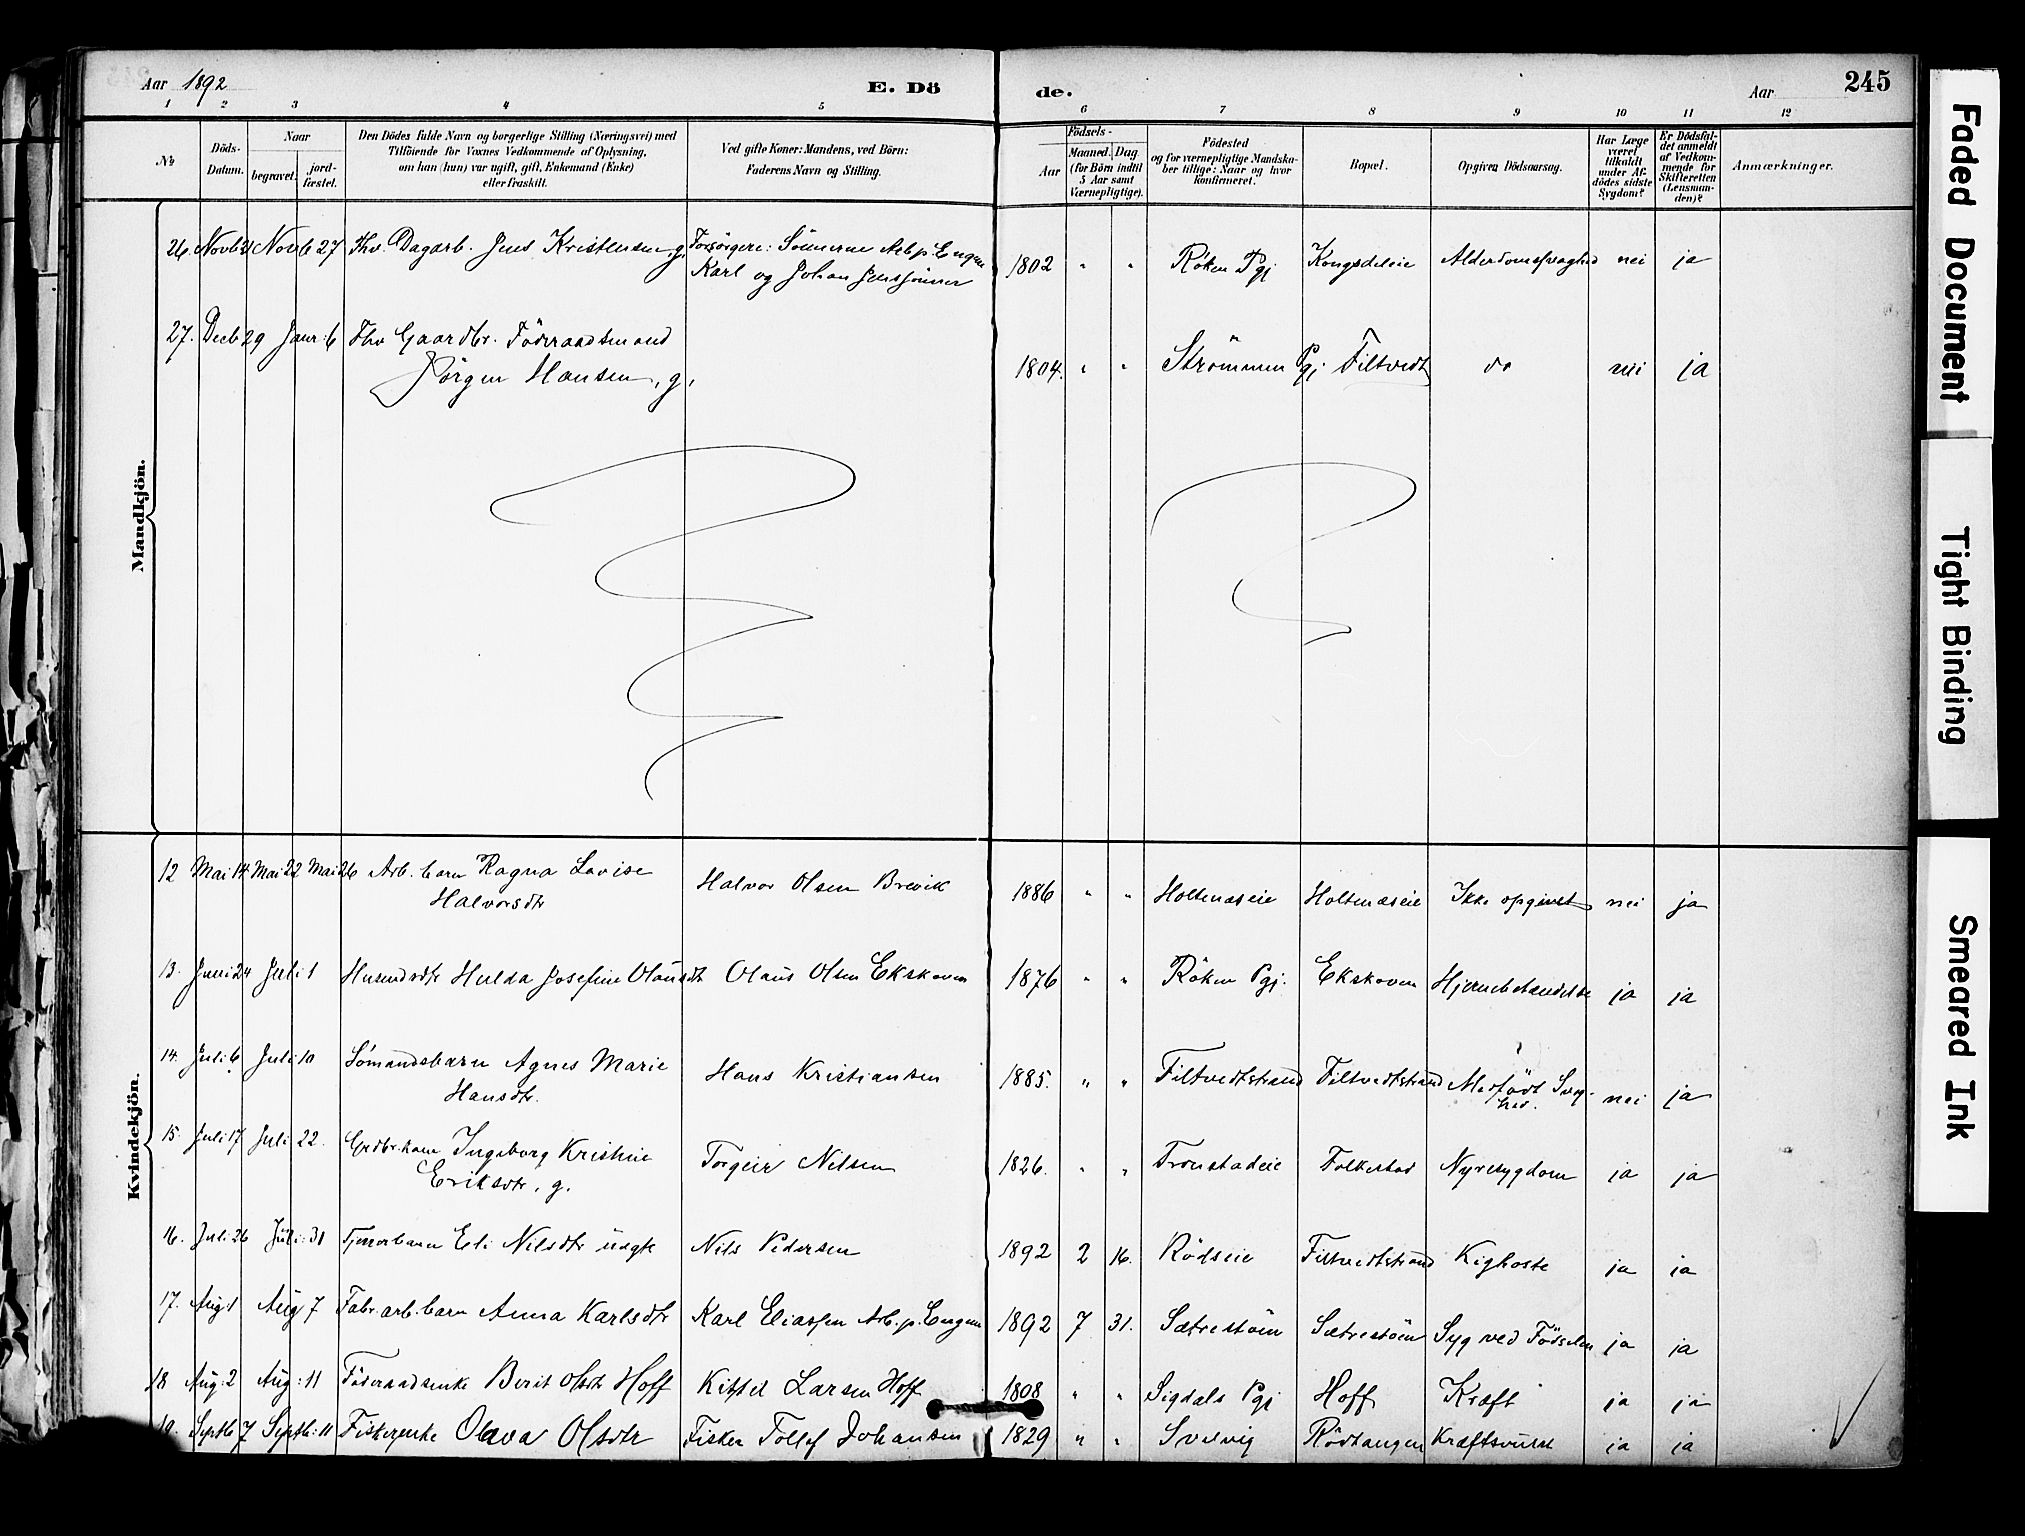 Aar 1892 E. Dö
de. Aar 245
1 2 3 4 5 6 7 8 9 10 11 12
№
Döds-
Datum.
Naar
begravet.
jord-
fæstet.
Den Dödes fulde Navn og borgerlige Stilling (Næringsvei) med
Tilföiende for Voxnes Vedkommende af Oplysning,
om han (hun) var ugift, gift, Enkemand (Enke)
eller fraskilt.
Ved gifte Koner: Mandens, ved Börn:
Faderens Navn og Stilling.
Födsels-
Aar
Maaned. Dag.
(for Börn indtil
5 Aar samt
Værnepligtige).
Födested
og for værnepligtige Mandska-
ber tillige: Naar og hvor
konfirmeret.
Bopæl.
Opgiven Dödsaarsag.
Har Læge
været
tilkaldt
under Af-
dödes sidste
Sygdom?
Er Dödsfal-
det anmeldt
af Vedkom-
mende for
Skifteretten
(Lensman-
den)?
Anmærkninger.
Mandkjön.
26. Novb 21 Novb 27 Fhv. Dagarb. Jens Kristensen, g. Forsörgere: Sönnerne Arb. p. Engen
Karl og Johan Jenssönner
1802 " " Röken Pgj Kongsdeleie Alderdomssvaghed nei ja
27. Decb 29 Janr: 6 Fhv Gaardbr. Föderaadsmand
Jörgen Hansen, g.
1804. " " Strömmen Pgj. Filtvedt do nei ja
Kvindekjön.
12 Mai 14 Mai 22 Mai 26 Arb. barn Ragna Lovise
Halvorsdtr
Halvor Olsen Brevik 1886 " " Holtenæseie Holtenæseie Ikke opgivet nei ja
13. Juni 24 Juli 1 Husmdsdtr Hulda Josefine Olausdtr Olaus Olsen Ekskoven 1876 " " Röken Pgj. Ekskoven Hjernebetændelse ja ja
14. Juli 6 Juli 10 Sömandsbarn Agnes Marie
Hansdtr.
Hans Kristiansen 1885. " " Filtvedtstrand Filtvedtstrand Medfödt Svag-
hed. nei ja
15. Juli 17 Juli 22. Grdbr.kone Ingeborg Kristine
Eriksdtr, g.
Torgeir Nilsen 1826. " " Tronstadeie Folkestad Nyresygdom ja ja
16. Juli 26 Juli: 31 Tjenerbarn Eli Nilsdtr uægte Nils Pedersen 1892 2 16. Rödseie Filtvedtstrand Kighoste ja ja
17. Aug 1 Aug 7 Fabr.arb.barn Anna Karlsdtr Karl Eliassen Arb. p. Engen 1892 7 31. Sætrestöen Sætrestöen Syg ved Födselen ja ja
18 Aug: 2 Aug: 11 Föderaadsenke Berit Olsdtr Hoff Kittil Larsen Hoff 1808 " " Sigdals Pgj Hoff Kræft ja ja
19. Septb 7 Septb: 11 Fiskerenke Olava Olsdtr Fisker Tollef Johansen 1829 " " Svelvig Rödtangen Kræftsvulst ja ja
Faded Document
Tight Binding
Smeared Ink